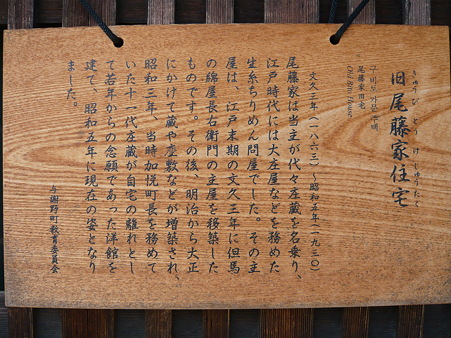 きゅうびとうけじゅうたく
旧尾藤家住宅
구 비토 가문 주택
尾藤家旧宅
Old Bito House
文久三年(一八六三)〜昭和五年(一九三〇)
尾藤家は当主が代々庄蔵を名乗り、
江戸時代には大庄屋などを務めた
生糸ちりめん問屋でした。その主
屋は、江戸末期の文久三年に但馬
の綿屋長右衛門の主屋を移築した
ものです。その後、明治から大正
にかけて蔵や座敷などが増築され、
昭和三年、当時加悦町長を務めて
いた十一代庄蔵が自宅の離れとし
て若年からの念願であった洋館を
建て、昭和五年に現在の姿となり
ました。
与謝野町教育委員会